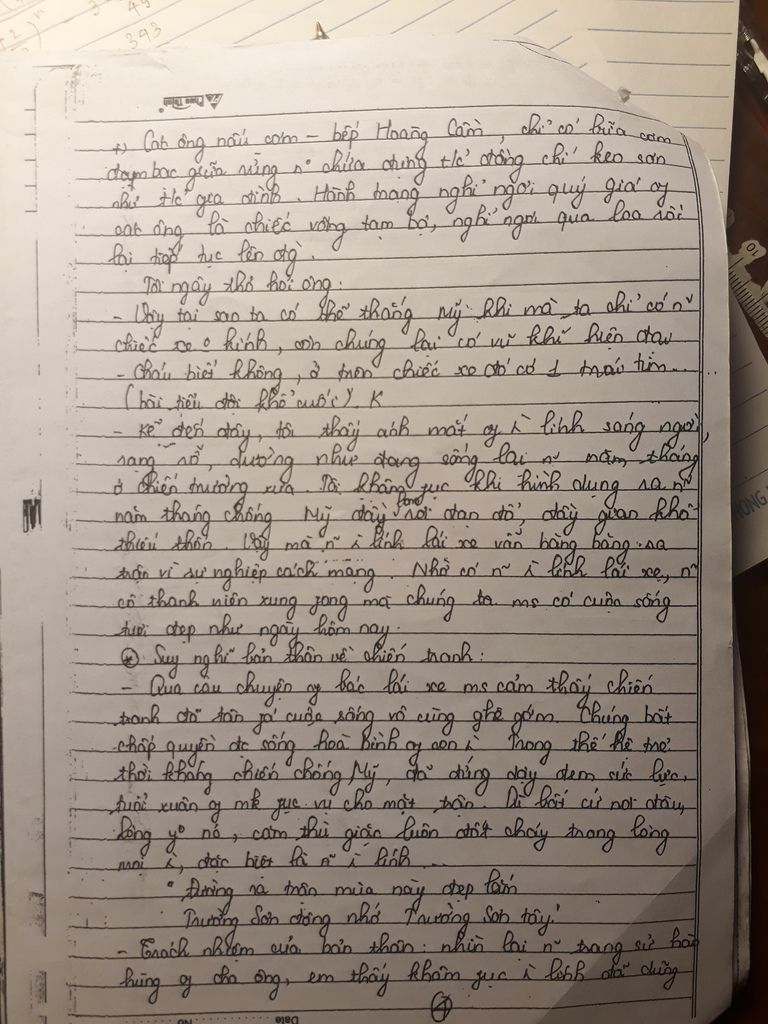 393
+) Các ông nấu cơm – bếp Hoàng Cầm, chỉ có bữa cơm
đạm bạc giữa rừng nº chứa đựng t/c đồng chí keo sơn
như t/c gia đình. Hành trang nghỉ ngơi quý giá of
các ông là chiếc võng tạm bợ, nghỉ ngơi qua loa rồi
lại tiếp tục lên đg.
Tôi ngây thơ hỏi ông:
- Vậy tại sao ta có thể thắng Mỹ khi mà ta chỉ có n~
chiếc xe o kính, còn chúng lại có vũ khí hiện đại
- Cháu biết không, ở trên chiếc xe đó có 1 trái tim...
(bài tiểu đội khổ cuối). K
- Kể đến đây, tôi thấy ánh mắt of i lính sáng ngời,
rạng rỡ, dường như đang sống lại n~ năm tháng
ở chiến trường xưa. Tôi khâm fục khi hình dung ra n~
năm tháng chống Mỹ đầy bom rơi đạn đổ, đầy gian khổ
thiếu thốn. Vậy mà n~ i lính lái xe vẫn băng băng ra
trận vì sự nghiệp cách mạng. Nhờ có n~ i lính lái xe, n~
cô thanh niên xung fong mà chúng ta ms có cuộc sống
tươi đẹp như ngày hôm nay.
⊛ Suy nghĩ bản thân về chiến tranh:
- Qua câu chuyện of bác lái xe ms cảm thấy chiến
tranh đã tàn fá cuộc sống vô cùng ghê gớm. Chúng bất
chấp quyền đc sống hoà bình of con i. Trong thế hệ trẻ
thời kháng chiến chống Mỹ, đã đứng dậy đem sức lực,
tuổi xuân of mk fục vụ cho mặt trận. Dì bất cứ nơi đâu,
lòng yº nó, căm thù giặc luôn đốt cháy trong lòng
mọi i, đặc biệt là n~ i lính...
" Đường ra trận mùa này đẹp lắm
Trường Sơn đông nhớ Trường Sơn tây."
- Trách nhiệm của bản thân: nhìn lại n~ trang sử hào
hùng of cha ông, em thấy khâm fục i lính đã dũng
4
Date No